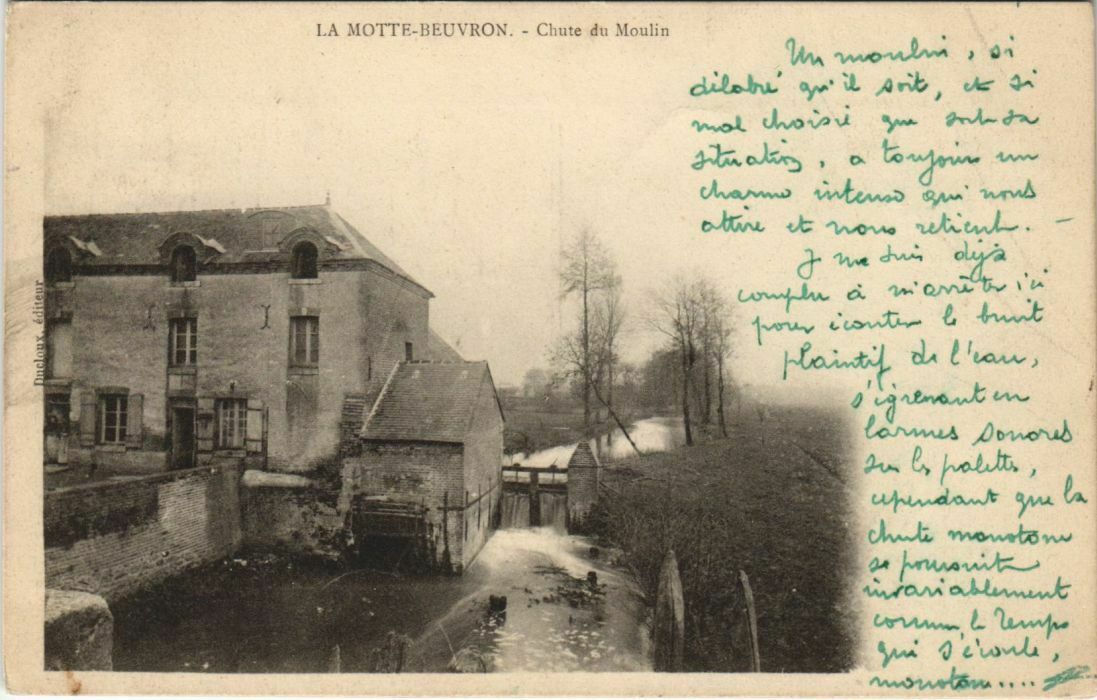 LA MOTTE-BEUVRON. - Chute du Moulin
Ducloux, éditeur
Un moulin, si
délabré qu'il soit, et si
mal choisie que soit sa
situation, a toujours un
charme intense qui nous
attire et nous retient. –
Je me suis déjà
complu à m'arrêter ici
pour écouter le bruit
plaintif de l'eau,
s'égrenant en
larmes sonores
sur les palettes,
cependant que la
chute monotone
se poursuit
invariablement
comme le Temps
qui s'écoule,
monotone....